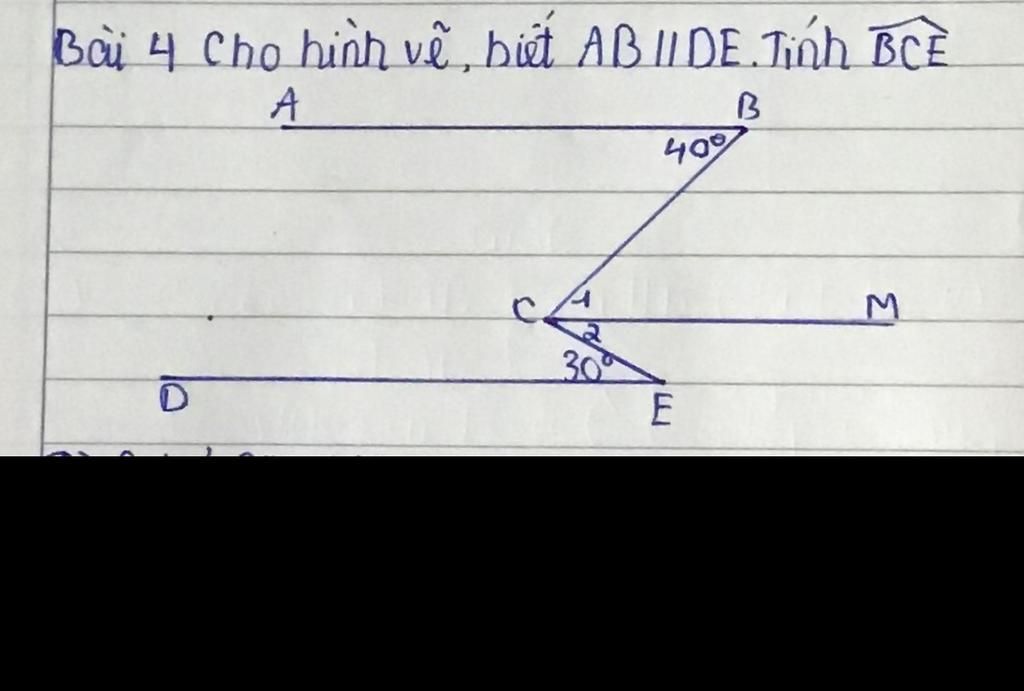 Bài 4 Cho hình vẽ, biết AB // DE. Tính \widehat{BCE}
A B
40°
C 1 M
2
30°
D E